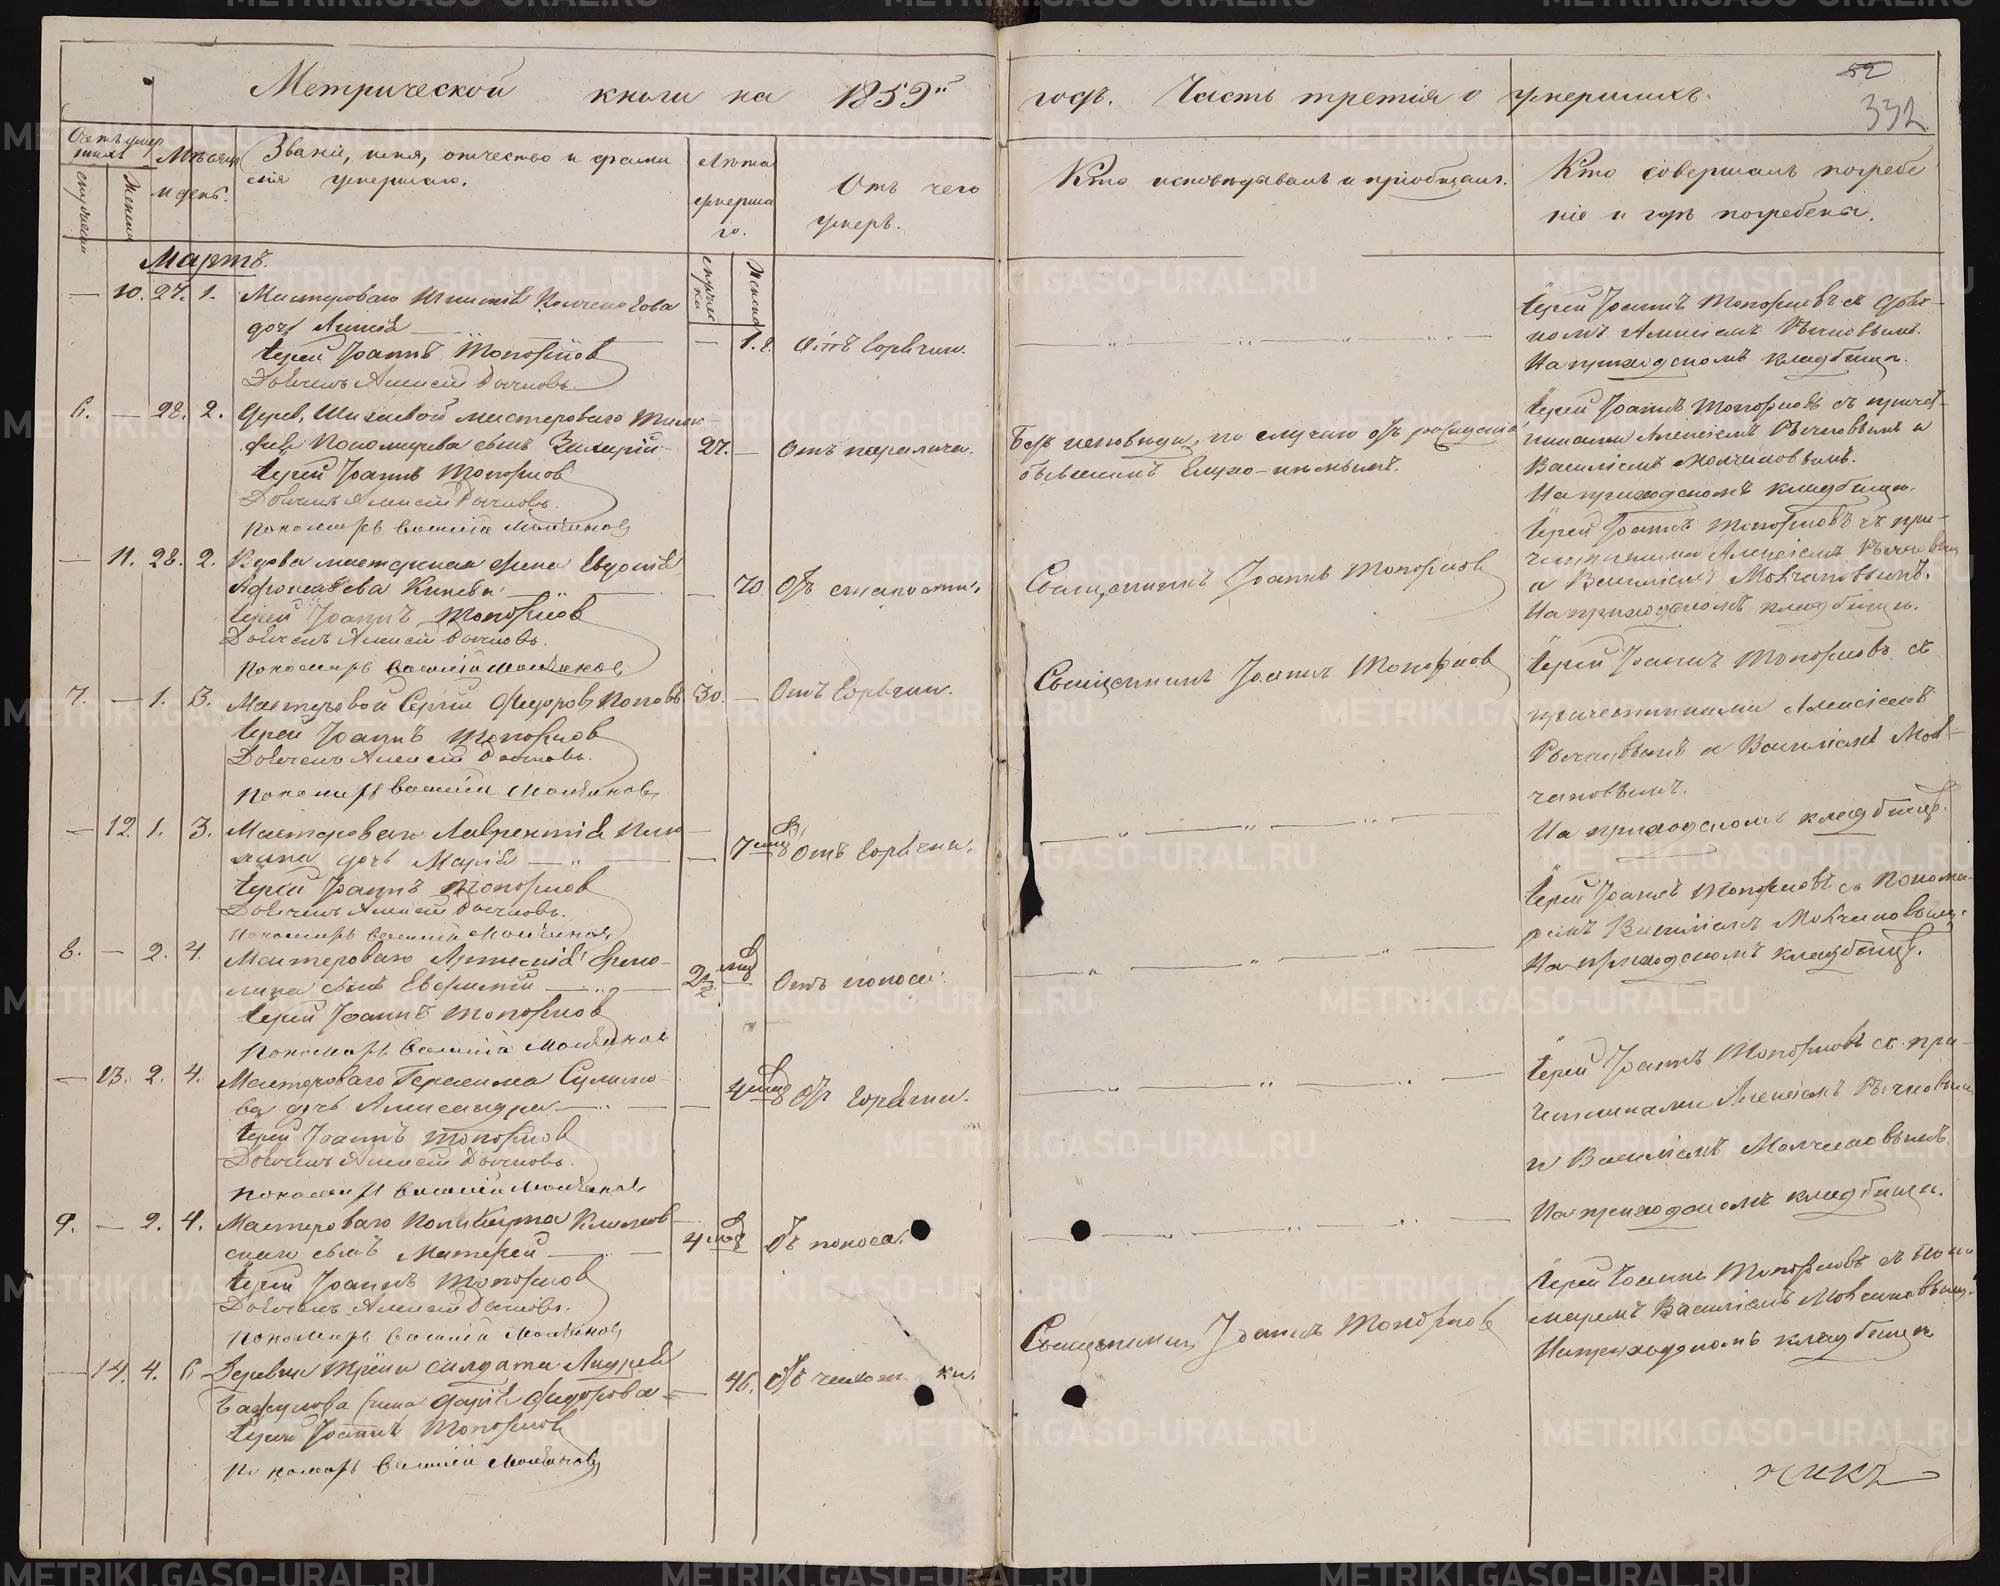 Метрической книги на 1859й
годъ. Часть третія о умершихъ.
52
332
Счетъ умер
шихъ
мужеска
женска
Мѣсяцъ
и день.
Званіе, имя, отчество и фами
лія умершаго.
Лѣта
умерша
го.
Отъ чего
умеръ.
Кто исповѣдывалъ и пріобщалъ.
Кто совершалъ погребе
ніе и гдѣ погребены.
Мартъ.
— 10. 27. 1. Мастероваго
дочь
Іерей Іоаннъ Топорковъ
Дьячекъ Алексѣй Рычковъ.
— 1. г. Отъ горячки.
Іерей Іоаннъ Топорковъ съ дьяч-
комъ Алексіемъ Рычковымъ.
На приходскомъ кладбищѣ.
6. — 28. 2. Дерев. мастероваго
Пономарева сынъ
Іерей Іоаннъ Топорковъ
Дьячекъ Алексѣй Рычковъ.
Пономарь Василій Молчановъ
27. — Отъ паралича.
Безъ исповѣди, по случаю отъ рожденія
бывшимъ глухо-нѣмымъ.
Іерей Іоаннъ Топорковъ съ причет-
никами Алексіемъ Рычковымъ и
Василіемъ Молчановымъ.
На приходскомъ кладбищѣ.
— 11. 28. 2. Вдова мастерская жена Евдокія
Афонасьева
Іерей Іоаннъ Топорковъ
Дьячекъ Алексѣй Рычковъ.
Пономарь Василій Молчановъ
— 70. Отъ старости.
Священникъ Іоаннъ Топорковъ
Іерей Іоаннъ Топорковъ съ при-
четниками Алексіемъ Рычковым
и Василіемъ Молчановымъ.
На приходскомъ кладбищѣ.
7. — 1. 3. Мастеровой Сергій Ѳедоровъ Поповъ
Іерей Іоаннъ Топорковъ
Дьячекъ Алексѣй Рычковъ.
Пономарь Василій Молчановъ
30. — Отъ горячки.
Священникъ Іоаннъ Топорковъ
Іерей Іоаннъ Топорковъ съ
причетниками Алексіемъ
Рычковымъ и Василіемъ Мол-
чановымъ.
На приходскомъ кладбищѣ.
— 12. 1. 3. Мастероваго Лаврентія
дочь Марія
Іерей Іоаннъ Топорковъ
Дьячекъ Алексѣй Рычковъ.
Пономарь Василій Молчановъ
— 7 мцъ Отъ горячки.
Іерей Іоаннъ Топорковъ съ понома-
ремъ Василіемъ Молчановымъ.
На приходскомъ кладбищѣ.
8. — 2. 4. Мастероваго
сынъ Евгеній
Іерей Іоаннъ Топорковъ
Пономарь Василій Молчановъ
2½ мцъ Отъ поноса.
— 13. 2. 4. Мастероваго Герасима Сулимо-
ва дочь Александра
Іерей Іоаннъ Топорковъ
Дьячекъ Алексѣй Рычковъ.
Пономарь Василій Молчановъ
— 4 мцъ Отъ горячки.
Іерей Іоаннъ Топорковъ съ при-
четниками Алексіемъ Рычковым
и Василіемъ Молчановымъ.
На приходскомъ кладбищѣ.
9. — 2. 4. Мастероваго Поликарпа Климов-
скаго сынъ Матвей
Іерей Іоаннъ Топорковъ
Дьячекъ Алексѣй Рычковъ.
Пономарь Василій Молчановъ
4 мцъ Отъ поноса.
Іерей Іоаннъ Топорковъ съ поно
маремъ Василіемъ Молчановымъ.
На приходскомъ кладбищѣ
— 14. 4. 6 Деревни солдата Андрея
жена Ѳедорова
Іерей Іоаннъ Топорковъ
Пономарь Василій Молчановъ
— 46. Отъ чахотки.
Священникъ Іоаннъ Топорковъ
METRIKI.GASO-URAL.RU